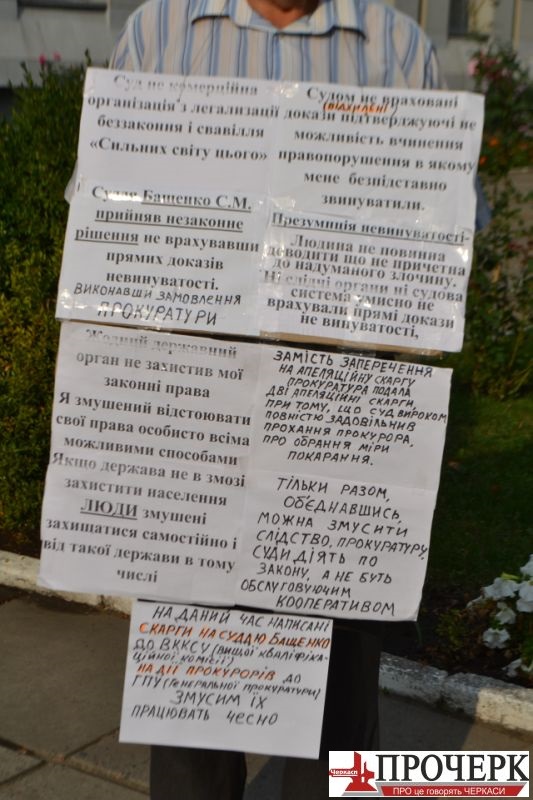 Суд не комерційна
організація з легалізації
беззаконня і свавілля
«Сильних світу цього»
Судом не враховані
(відхилені)
докази підтверджуючі не
можливість вчинення
правопорушення в якому
мене безпідставно
звинуватили.
Суддя Бащенко С.М.
прийняв незаконне
рішення не врахувавши
прямих доказів
невинуватості.
ВИКОНАВШИ ЗАМОВЛЕННЯ
ПРОКУРАТУРИ
Презумпція невинуватості-
Людина не повинна
доводити що не причетна
до надуманого злочину.
Ні слідчі органи ні судова
система умисно не
врахували прямі докази
не винуватості,
Жодний державний
орган не захистив мої
законні права
Я змушений відстоювати
свої права особисто всіма
можливими способами
Якщо держава не в змозі
захистити населення
ЛЮДИ змушені
захищатися самостійно і
від такої держави в тому
числі
ЗАМІСТЬ ЗАПЕРЕЧЕННЯ
НА АПЕЛЯЦІЙНУ СКАРГУ
ПРОКУРАТУРА ПОДАЛА
ДВІ АПЕЛЯЦІЙНІ СКАРГИ,
ПРИ ТОМУ, ЩО СУД ВИРОКОМ
ПОВНІСТЮ ЗАДОВІЛЬНИВ
ПРОХАННЯ ПРОКУРОРА,
ПРО ОБРАННЯ МІРИ
ПОКАРАННЯ.
ТІЛЬКИ РАЗОМ,
ОБ'ЄДНАВШИСЬ,
МОЖНА ЗМУСИТИ
СЛІДСТВО, ПРОКУРАТУРУ,
СУДИ ДІЯТЬ ПО
ЗАКОНУ, А НЕ БУТЬ
ОБСЛУГОВУЮЧИМ
КООПЕРАТИВОМ
НА ДАНИЙ ЧАС НАПИСАНІ
СКАРГИ НА СУДДЮ БАЩЕНКО
ДО ВККСУ (ВИЩОЇ КВАЛІФІКА-
ЦІЙНОЇ КОМІСІЇ)
НА ДІЇ ПРОКУРОРІВ ДО
ГПУ (ГЕНЕРАЛЬНОЇ ПРОКУРАТУРИ)
ЗМУСИМ ЇХ
ПРАЦЮВАТЬ ЧЕСНО
Черкаси
ПРОЧЕРК
ПРО це говорять ЧЕРКАСИ